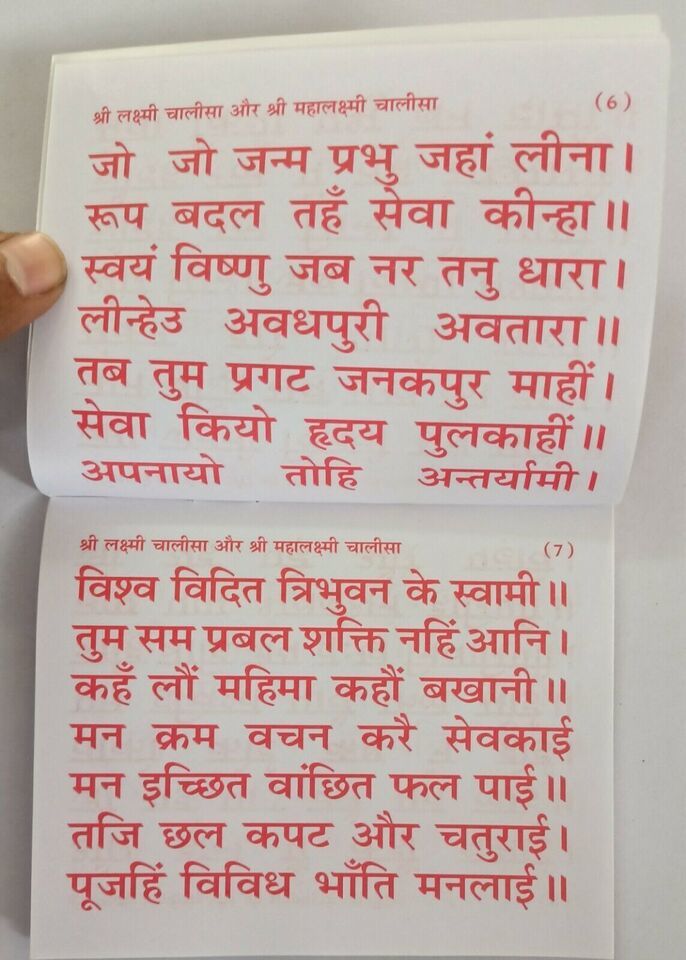 श्री लक्ष्मी चालीसा और श्री महालक्ष्मी चालीसा (6)
जो जो जन्म प्रभु जहां लीना।
रूप बदल तहँ सेवा कीन्हा॥
स्वयं विष्णु जब नर तनु धारा।
लीन्हेउ अवधपुरी अवतारा॥
तब तुम प्रगट जनकपुर माहीं।
सेवा कियो हृदय पुलकाहीं॥
अपनायो तोहि अन्तर्यामी।
श्री लक्ष्मी चालीसा और श्री महालक्ष्मी चालीसा (7)
विश्व विदित त्रिभुवन के स्वामी॥
तुम सम प्रबल शक्ति नहिं आनि।
कहँ लौं महिमा कहौं बखानी॥
मन क्रम वचन करै सेवकाई
मन इच्छित वांछित फल पाई॥
तजि छल कपट और चतुराई।
पूजहिं विविध भाँति मनलाई॥